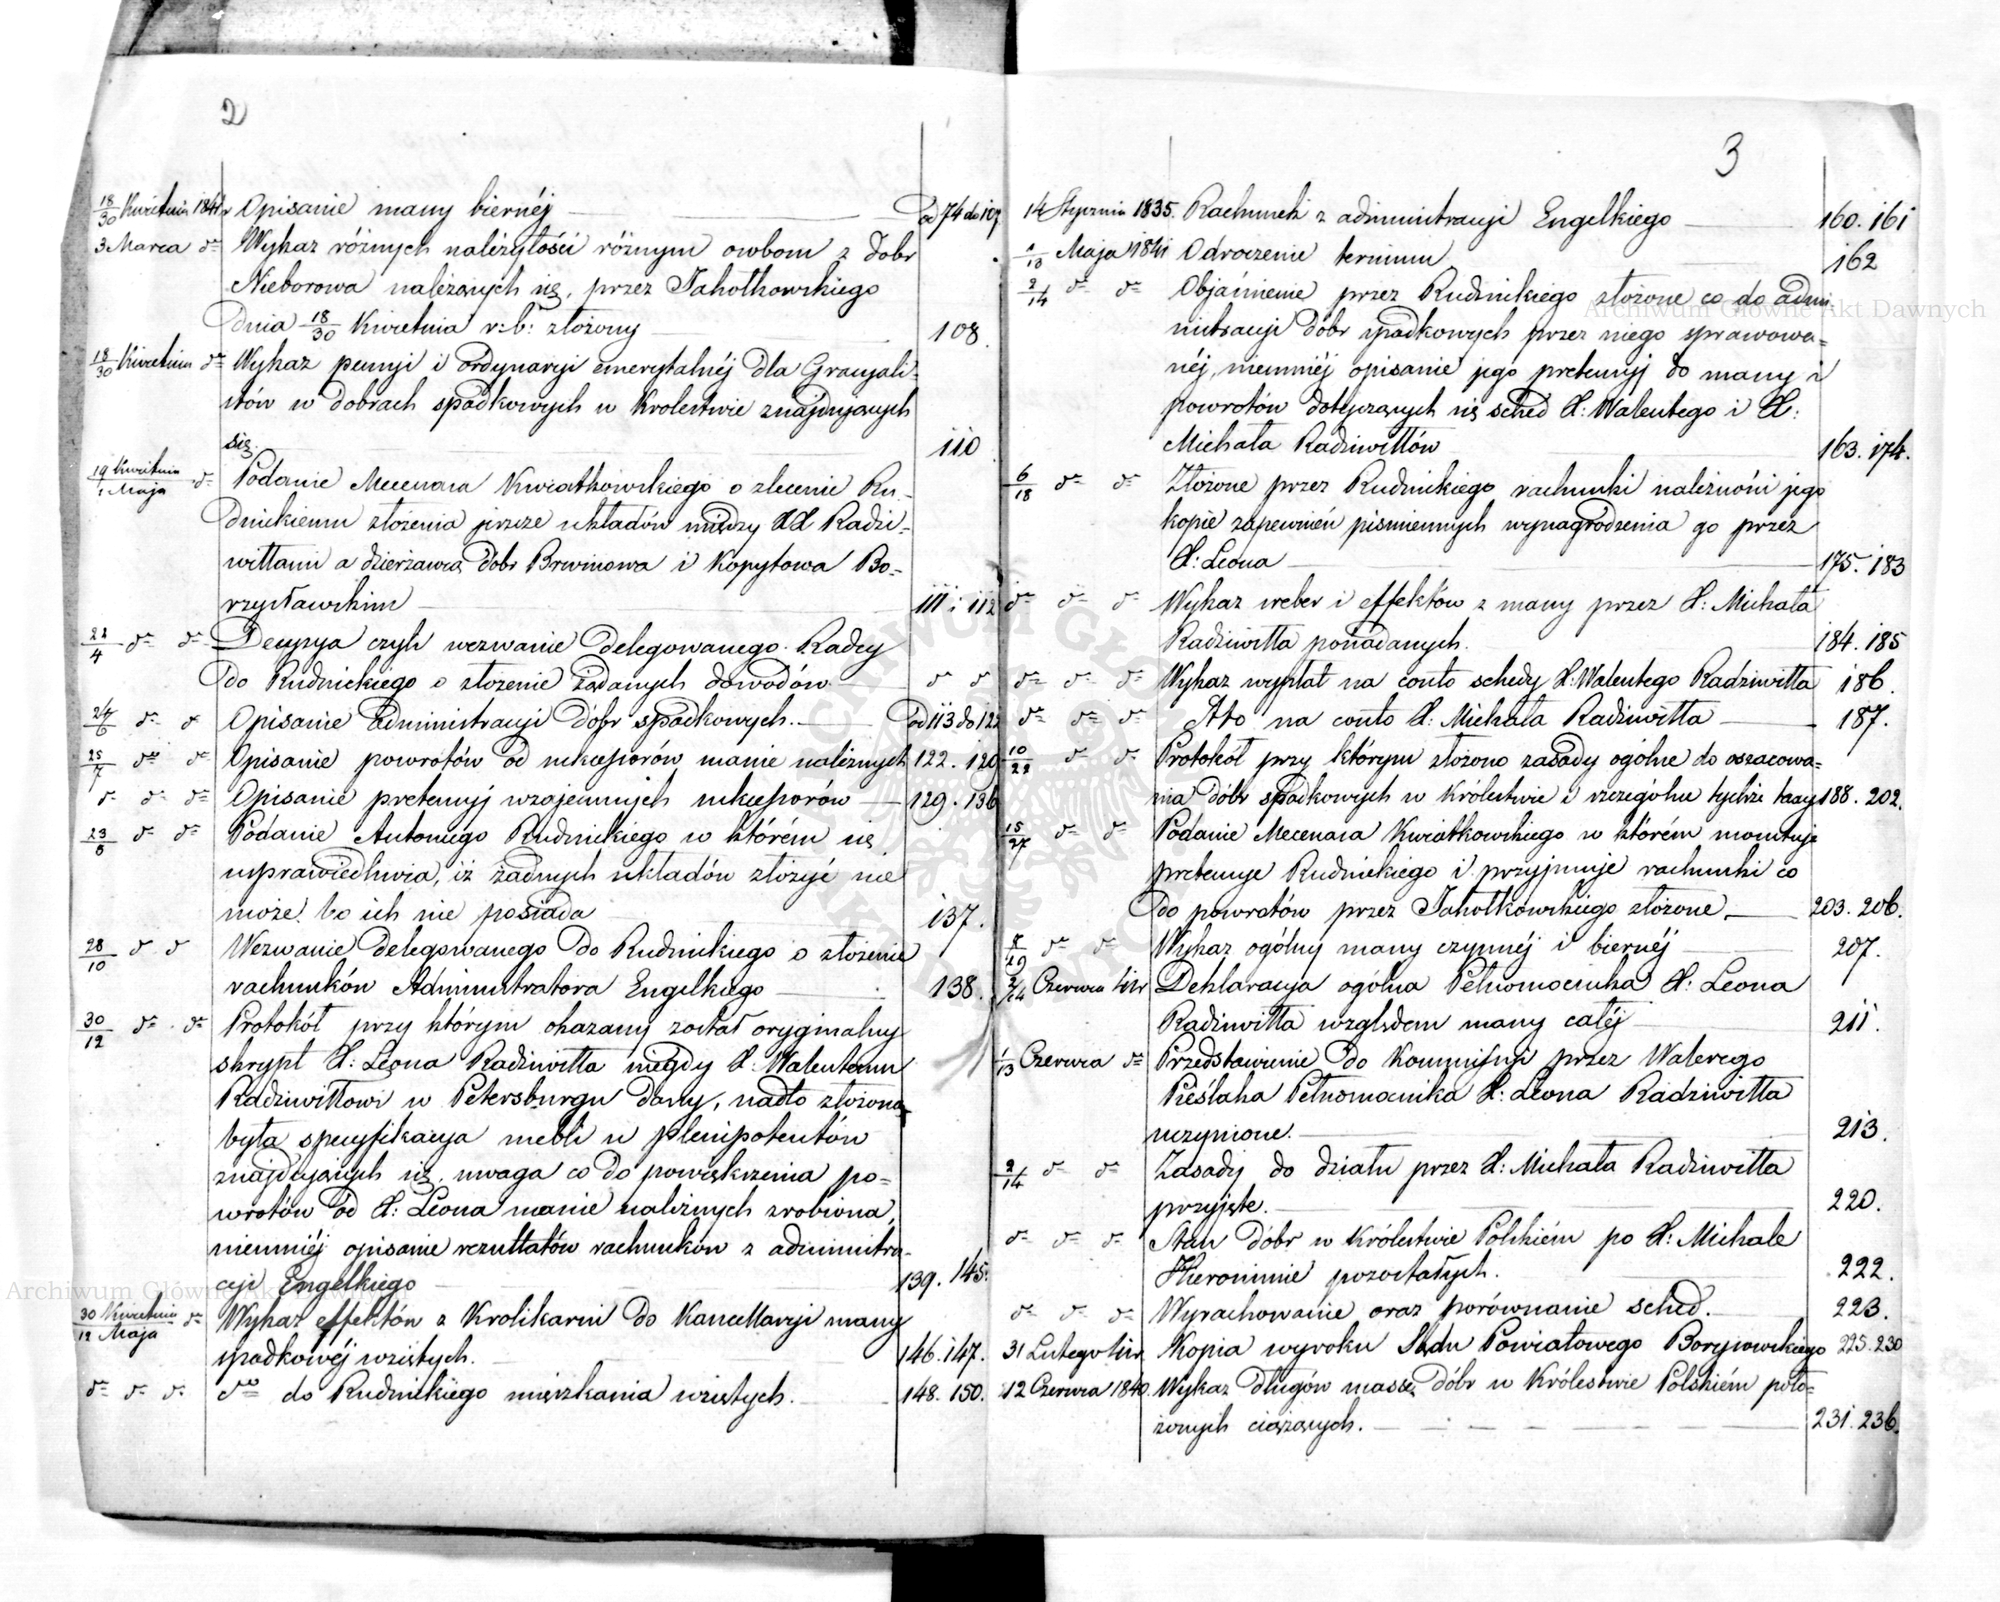 2
18/30 Kwietnia 1841 r Opisanie massy biernéj od 74 do 107
3 Marca dto Wykaz różnych należytości różnym osobom z dobr
Nieborowa należących się, przez Jahołkowskiego
dnia 18/30 Kwietnia r: b: złożony 108.
18/30 Kwietnia dto Wykaz pensyi i Ordynaryi emerytalnéj dla Gracyali-
stów w dobrach spadkowych w Krolestwie znajdujących
się. 110
19 Kwietnia/1 Maja dto Podanie Mecenasa Kwiatkowskiego o zlecenie Ru-
dnickiemu złożenia jeszcze układów między XX Radzi-
wiłłami a dzierżawcą dóbr Brwinowa i Kopytowa Bo-
rzysławskim 111 i 112
22/4 dto dto Decyzya czyli wezwanie Delegowanego Radcy
do Rudnickiego o złożenie żądanych dowodów d d
24/6 dto d Opisanie administracyi dóbr spadkowych. od 113 do 122
25/7 dto dto Opisanie powrotów od sukcessorów massie należnych 122. 129
d dto dto Opisanie pretensyj wzajemnych sukcessorów 129. 136
23/5 dto dto Podanie Antoniego Rudnickiego w którém się
usprawiedliwia, iż żadnych układów złożyć nie
może, bo ich nie posiada 137.
28/10 d d Wezwanie Delegowanego do Rudnickiego o złożenie
rachunków Administratora Engelkiego 138.
30/12 dto dto Protokół przy którym okazany został oryginalny
skrypt X: Leona Radziwiłła niegdy X: Walentemu
Radziwiłłowi w Petersburgu dany, nadto złożona
była specyfikacya mebli u plenipotentów
znajdujących się, uwaga co do powiększenia po-
wrotów od X: Leona massie należnych zrobiona,
niemniéj opisanie rezultatów rachunków z administra-
cyi Engelkiego 139. 145.
30 Kwietnia/12 Maja dto Wykaz effektów z Krolikarni do Kancellaryi massy
spadkowéj wziętych. 146. 147.
dto dto d. dto do Rudnickiego mieszkania wziętych. 148. 150.
3
14 Stycznia 1835. Rachunek z administracyi Engelkiego 160. 161
1/13 Maja 1841 Odroczenie terminu 162
2/14 dto dto Objaśnienie przez Rudnickiego złożone co do admi-
nistracyi dóbr spadkowych przez niego sprawowa-
néj, niemniéj opisanie jego pretensyj do massy i
powrotów dotyczących się sched X: Walentego i X:
Michała Radziwiłłów 163. 174.
6/18 dto dto Złożone przez Rudnickiego rachunki należności jego
kopie zapewnień pismiennych wynagrodzenia go przez
X: Leona 175. 183
dto dto dto Wykaz sreber i effektów z massy przez X: Michała
Radziwiłła posiadanych. 184. 185
dto dto dto Wykaz wypłat na conto schedy X: Walentego Radziwiłła 186.
dto dto dto dto na conto X: Michała Radziwiłła 187.
10/22 dto dto Protokół przy którym złożono zasady ogólne do oszacowa-
nia dóbr spadkowych w Królestwie i szczególne tychże taxy 188. 202.
15/27 dto dto Podanie Mecenasa Kwiatkowskiego w którém monituje
pretensye Rudnickiego i przyjmuje rachunki co
do powrotów przez Jahołkowskiego złożone 203. 206.
/29 dto dto Wykaz ogólny massy czynnéj i biernéj 207.
2/14 Czerwca Deklaracya ogólna Pełnomocnika X: Leona
Radziwiłła względem massy całéj 211.
1/13 Czerwca dto Przedstawienie do Kommissyi przez Walerego
Pieślaka Pełnomocnika X: Leona Radziwiłła
uczynione. 213.
2/14 dto dto Zasady do działu przez X: Michała Radziwiłła
przyjęte. 220.
dto dto dto Stan dóbr w Królestwie Polskiém po X: Michale
Hieronimie pozostałych. 222.
dto dto dto Wyrachowanie oraz porównanie sched. 223.
31 Lutego Kopia wyroku Sądu Powiatowego Borysowskiego 225. 230
12 Czerwca 1840. Wykaz długów massę dóbr w Królestwie Polskiém poło-
żonych ciążących. 231. 236.
Archiwum Główne Akt Dawnych
Archiwum Główne